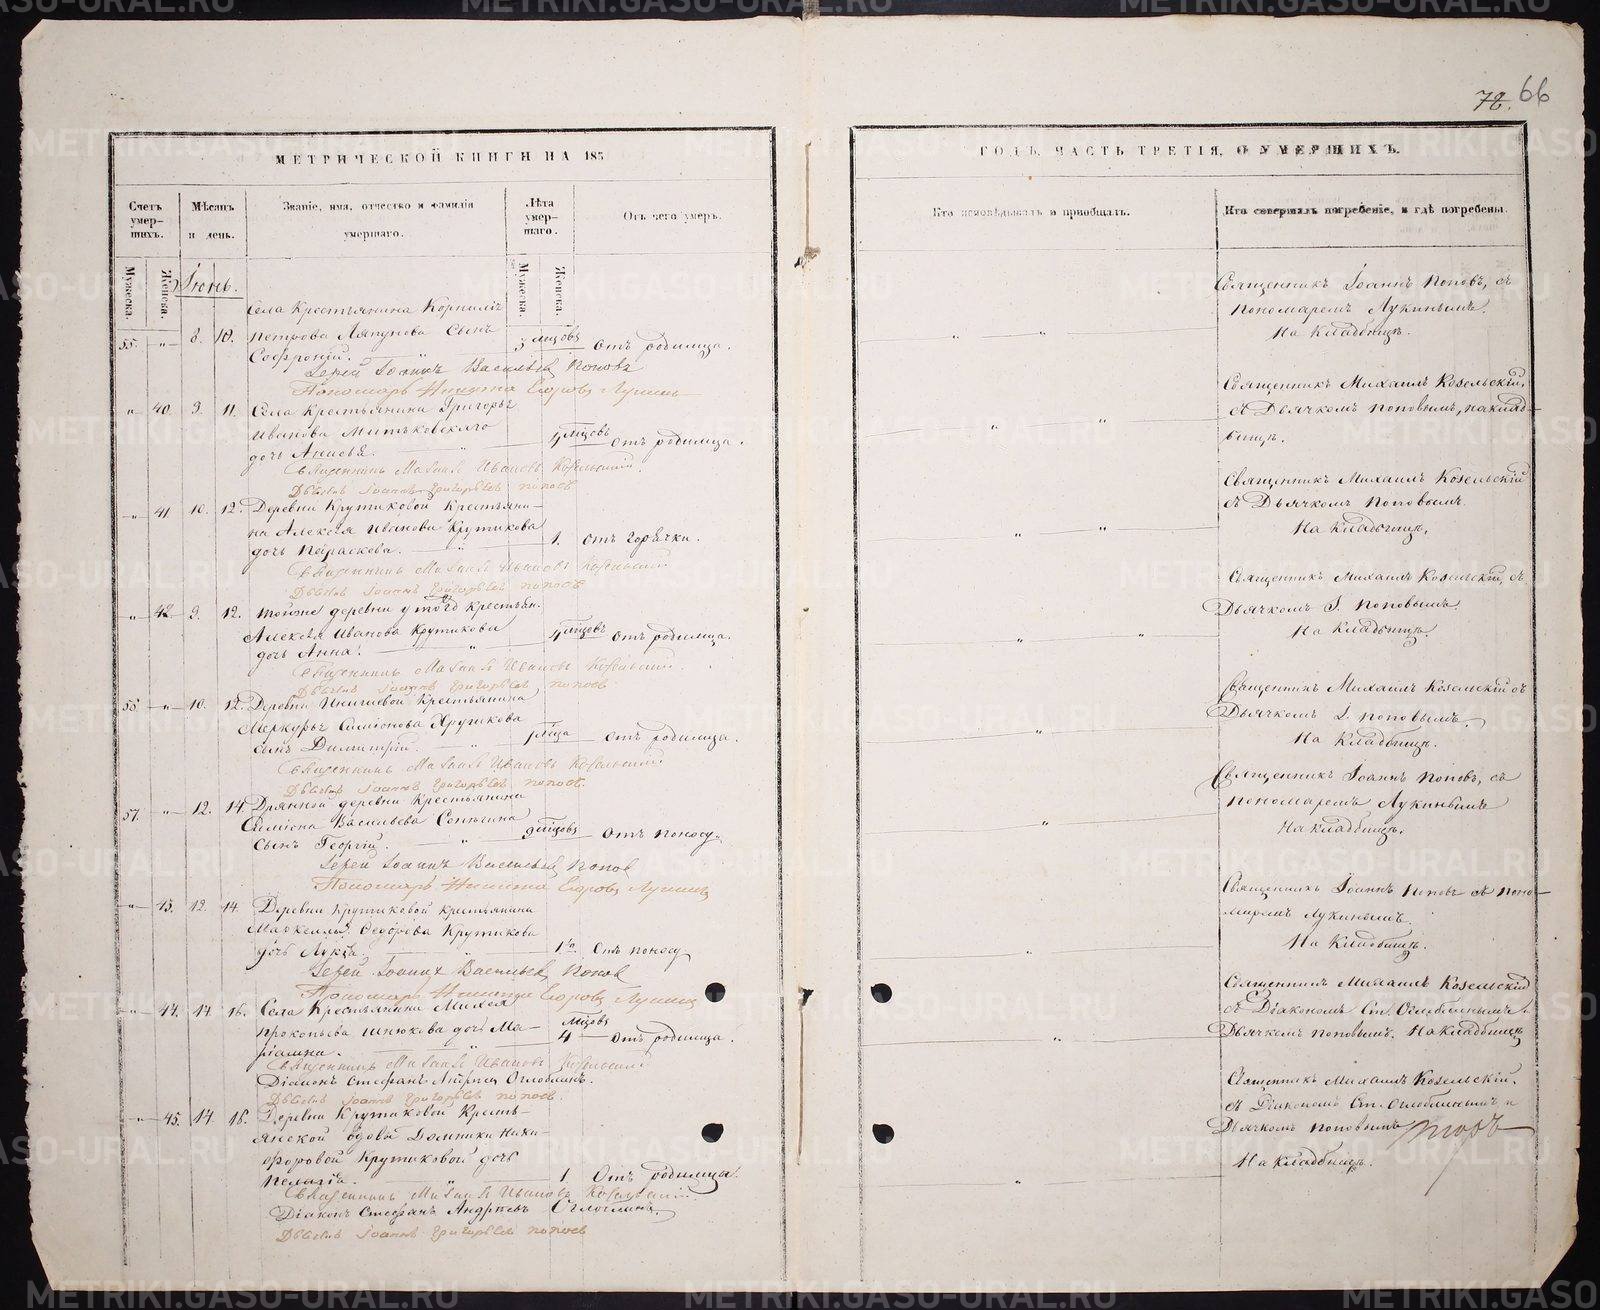 78. 66
МЕТРИЧЕСКОЙ КНИГИ НА 185
ГОДЪ, ЧАСТЬ ТРЕТІЯ, О УМЕРШИХЪ.
Счетъ умер-шихъ.
Мѣсяцъ и день.
Званіе, имя, отчество и фамилія умершаго.
Лѣта умер-шаго.
Отъ чего умеръ.
Кто исповѣдывалъ и пріобщалъ.
Кто совершалъ погребеніе, и гдѣ погребены.
Мужеска.
Женска.
Мужеска.
Женска.
Іюнь.
Села Крестьянина Корнилія
55. „ 8. 10. Петрова Ляпунова Сынъ
Софроній. 3 мѣсцовъ Отъ родимца.
Священникъ Іоаннъ Поповъ, съ
пономаремъ Лукинымъ.
На Кладбищѣ.
Іерей Іоаннъ Васильевъ Поповъ
Пономарь Никита Егоровъ Лукинъ
„ 40. 9. 11. Села Крестьянина Григорья
Иванова Митьковскаго
дочь Анисья. 4 мѣсцовъ Отъ родимца.
Священникъ Михаилъ Козельскій,
съ Дьячкомъ Поповымъ, на клад-
бищѣ.
Священникъ Михаилъ Ивановъ Козельскій.
Дьячокъ Іоаннъ Григорьевъ Поповъ
„ 41. 10. 12. Деревни Крутиковой Крестьяни-
на Алексѣя Иванова Крутикова
дочь Параскева. 1. Отъ Горячки.
Священникъ Михаилъ Козельскій
съ Дьячкомъ Поповымъ.
На Кладбищѣ.
Священникъ Михаилъ Ивановъ Козельскій
Дьячокъ Іоаннъ Григорьевъ Поповъ
„ 42. 9. 12. Тойже деревни у того Крестьян.
Алексѣя Иванова Крутикова
дочь Анна. 4 мѣсцовъ Отъ родимца.
Священникъ Михаилъ Козельскій, съ
Дьячкомъ І. Поповымъ.
На Кладбищѣ.
Священникъ Михаилъ Ивановъ Козельскій.
Дьячокъ Іоаннъ Григорьевъ Поповъ
„ 10. 12. Деревни Крестьянина
Меркурья Симіонова
сынъ Димитрій. 1 мѣсца Отъ родимца.
Священникъ Михаилъ Козельскій съ
Дьячкомъ І. Поповымъ.
На Кладбищѣ.
Священникъ Михаилъ Ивановъ Козельскій
Дьячокъ Іоаннъ Григорьевъ Поповъ.
57. „ 12. 14. Дрянной деревни Крестьянина
Симіона Васильева
Сынъ Георгій. 9 мѣсцовъ Отъ поносу.
Священникъ Іоаннъ Поповъ, съ
пономаремъ Лукинымъ
На кладбищѣ.
Іерей Іоаннъ Васильевъ Поповъ
Пономарь Никита Егоровъ Лукинъ
„ 12. 14. Деревни Крутиковой крестьянина
Маркелла Ѳедорова Крутикова
дочь Лукія. Отъ поносу
Священникъ Іоаннъ Поповъ съ поно-
маремъ Лукинымъ.
На Кладбищѣ.
Іерей Іоаннъ Васильевъ Поповъ
Пономарь Никита Егоровъ Лукинъ
„ 44. 14. 16. Села Крестьянина Михея
Прокопьева дочь Ма-
ріамна. 4 мѣсцовъ Отъ родимца.
Священникъ Михаилъ Козельскій
съ Діакономъ Ст. Оглоблинымъ
Дьячкомъ Поповымъ. На Кладбищѣ
Священникъ Михаилъ Ивановъ Козельскій
Діаконъ Стефанъ Андреевъ Оглоблинъ.
Дьячокъ Іоаннъ Григорьевъ Поповъ.
„ 45. 14. 16. Деревни Крутиковой Кресть-
янской вдовы Домники Ники-
форовой Крутиковой дочь
Пелагія. 1. Отъ родимца.
Священникъ Михаилъ Козельскій.
съ Діакономъ Ст. Оглоблинымъ и
Дьячкомъ Поповымъ
На Кладбищѣ.
Священникъ Михаилъ Ивановъ Козельскій.
Діаконъ Стефанъ Андреевъ Оглоблинъ
Дьячокъ Іоаннъ Григорьевъ Поповъ
METRIKI.GASO-URAL.RU